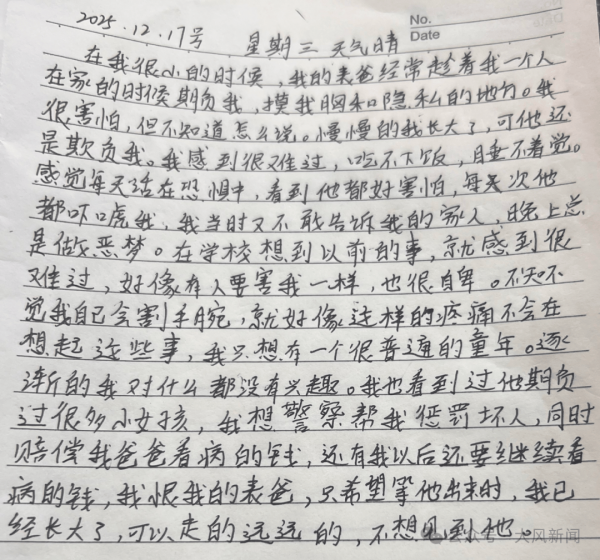 No.
Date
2025.12.17号 星期三 天气晴
在我很小的时候，我的表爸经常趁着我一个人
在家的时候期负我，摸我胸和隐私的地方。我
很害怕，但不知道怎么说。慢慢的我长大了，可他还
是欺负我。我感到很难过，吃不下饭，睡不着觉。
感觉每天活在恐惧中，看到他都好害怕，每次他
都吓唬我，我当时又不敢告诉我的家人，晚上总
是做恶梦。在学校想到以前的事，就感到很
难过，好像有人要害我一样，也很自卑。不知不
觉我自己会割手腕，就好像这样的疼痛不会在
想起这些事，我只想有一个很普通的童年。逐
渐的我对什么都没有兴趣。我也看到过他期负
过很多小女孩，我想警察帮我惩罚坏人，同时
赔偿我爸爸看病的钱，还有我以后还要继续看
病的钱，我恨我的表爸，只希望等他出来时，我已
经长大了，可以走的远远的，不想见到他。
公众号·大风新闻